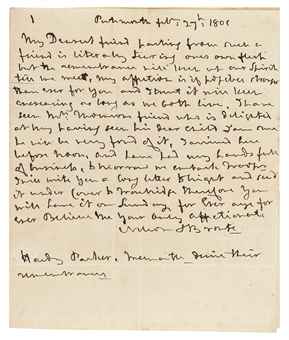 1 Portsmouth feb: 27th: 1801
My Dearest friend parting from such a
friend is literally tearing ones own flesh
but the remembrance will keep up our Spirits
till we meet, my affection is if possible stronger
than ever for you and I trust it will keep
encreasing as long as we both live, I have
seen Mrs: Thomsons friend who is delighted
at my having seen his dear child I am sure
he will be very fond of it, I arrived here
before noon, and have had my hands full
of business, tomorrow we embark troops
I will write you a long letter tonight and send
it under cover to Troubridge therefore You
will have it on Sunday for Ever aye for
Ever Believe me Your Only Affectionate
Nelson & Bronte
Hardy Parker, desire their
remembrances